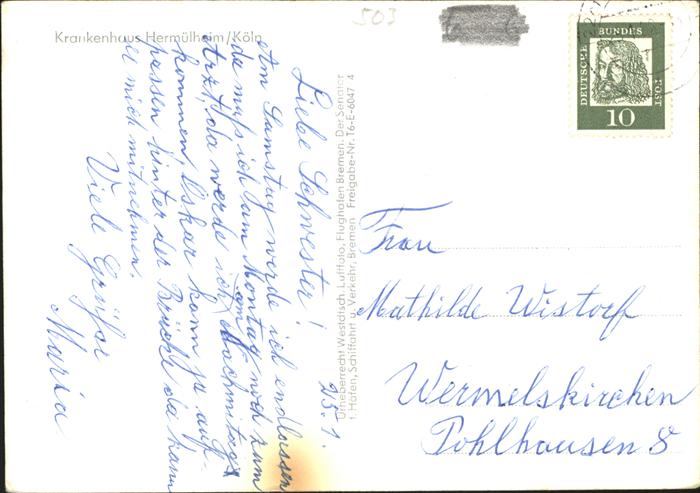 503
Krankenhaus Hermülheim/Köln
DEUTSCHE BUNDESPOST
10
Liebe Schwester!
Am Samstag werde ich endlassen
da muß ich am Montag noch zum
Arzt, da werde ich am Nachmittag
kommen, Oskar kann ja auf-
passen hinter der Brücke da kann
er mich mitnehmen.
Viele Grüße
Maria
Urheberrecht Westdtsch. Luftfoto, Flughafen Bremen. Der Senator
f. Häfen, Schiffahrt u. Verkehr, Bremen Freigabe-Nr. T6-E-6047 4
Frau
Mathilde Wistorf
Wermelskirchen
Pohlhausen 8